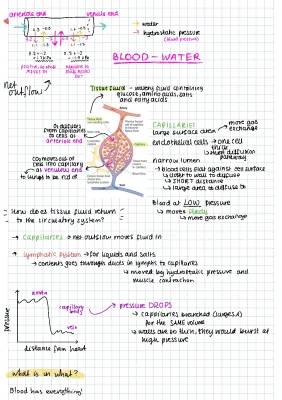 arteriole end
venule end
→ water
→ hydrostatic pressure
(blood pressure)
BLOOD - WATER
Net
outflow
Tissue fluid - watery fluid containing
glucose, amino acids, salts
and fatty acids
O₂ diffuses
from capillaries
to cells at
arteriole end
CO₂ moves out of
cells into capillary
at venule end
to lungs to be rid of
CAPILLARIES:
large surface area → more gas
exchange
endothelial cells → one cell
thick
↳ short diffusion
pathway
narrow lumen
↳ blood cells flat against cell surface
↳ closer to wall to diffuse
↳ SHORT distance
↳ large area to diffuse to
blood at LOW pressure
↳ moves slowly
↳ more gas exchange
How does tissue fluid return
to the circulatory system?
→ Capillaries → net outflow moves fluid in
→ Lymphatic system → for liquids and solids
→ contents goes through ducts in lymphs to capillaries
↳ moved by hydrostatic pressure and
muscle contraction
pressure
aorta
capillary
beds
vein
distance from heart
→ pressure DROPS
↳ capillaries branched (larger SA)
for the SAME volume
↳ walls are be thin, they would burst at
high pressure
what is in what?
Blood has everything!